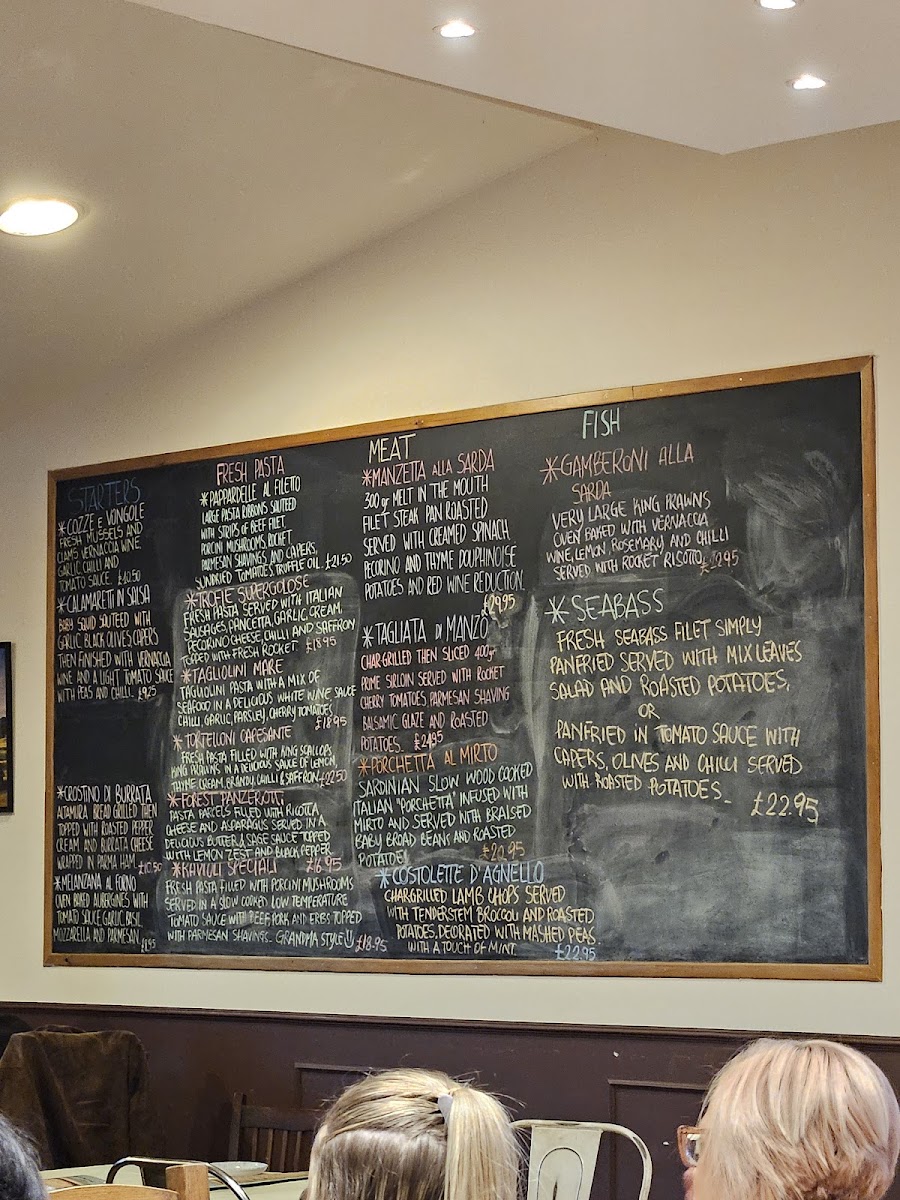 STARTERS
*COZZE E VONGOLE
FRESH MUSSELS AND
CLAMS VERNACCIA WINE
GARLIC CHILLI AND
TOMATO SAUCE. £10.50
*CALAMARETTI IN SALSA
BABY SQUID SAUTEED WITH
GARLIC, BLACK OLIVES, CAPERS
THEN FINISHED WITH VERNACCIA
WINE AND A LIGHT TOMATO SAUCE
WITH PEAS AND CHILLI. £9.25
*CROSTINO DI BURRATA
ALTAMURA BREAD GRILLED THEN
TOPPED WITH ROASTED PEPPER
CREAM AND BURRATA CHEESE
WRAPPED IN PARMA HAM. £10.50
*MELANZANA AL FORNO
OVEN BAKED AUBERGINES WITH
TOMATO SAUCE, GARLIC, BASIL
MOZZARELLA AND PARMESAN.
FRESH PASTA
*PAPPARDELLE AL FILETO
LARGE PASTA RIBBONS SAUTEED
WITH STRIPS OF BEEF FILET,
PORCINI MUSHROOMS, ROCKET,
PARMESAN SHAVINGS AND CAPERS,
SUNDRIED TOMATOES, TRUFFLE OIL. £21.50
*TROFIE SUPERGOLOSE
FRESH PASTA SERVED WITH ITALIAN
SAUSAGES, PANCETTA, GARLIC, CREAM,
PECORINO CHEESE, CHILLI AND SAFFRON
TOPPED WITH FRESH ROCKET £18.95
*TAGLIOLINI MARE
TAGLIOLINI PASTA WITH A MIX OF
SEAFOOD IN A DELICIOUS WHITE WINE SAUCE
CHILLI, GARLIC, PARSLEY, CHERRY TOMATOES, £18.95
*TORTELLONI CAPESANTE
FRESH PASTA FILLED WITH KING SCALLOPS,
KING PRAWNS IN A DELICIOUS SAUCE OF LEMON,
THYME CREAM, BRANDY, CHILLI & SAFFRON. £22.50
*FOREST PANZEROTTI
PASTA PARCELS FILLED WITH RICOTTA
CHEESE AND ASPARAGUS SERVED IN A
DELICIOUS BUTTER & SAGE SAUCE TOPPED
WITH LEMON ZEST AND BLACK PEPPER.
£16.95
*RAVIOLI SPECIALI
FRESH PASTA FILLED WITH PORCINI MUSHROOMS
SERVED IN A SLOW COOKED LOW TEMPERATURE
TOMATO SAUCE WITH BEEF, PORK AND ERBS TOPPED
WITH PARMESAN SHAVINGS.. GRANDMA STYLE £18.95
MEAT
*MANZETTA ALLA SARDA
300 gr MELT IN THE MOUTH
FILET STEAK PAN ROASTED
SERVED WITH CREAMED SPINACH,
PECORINO AND THYME DOUPHINOISE
POTATOES AND RED WINE REDUCTION.
£29.95
*TAGLIATA DI MANZO
CHARGRILLED THEN SLICED 400gr
PRIME SIRLOIN SERVED WITH ROCKET
CHERRY TOMATOES, PARMESAN SHAVING
BALSAMIC GLAZE AND ROASTED
POTATOES. £24.95
*PORCHETTA AL MIRTO
SARDINIAN SLOW WOOD COOKED
ITALIAN "PORCHETTA" INFUSED WITH
MIRTO AND SERVED WITH BRAISED
BABY BROAD BEANS AND ROASTED
POTATOE!
£20.95
*COSTOLETTE D'AGNELLO
CHARGRILLED LAMB CHOPS SERVED
WITH TENDERSTEM BROCCOLI AND ROASTED
POTATOES, DECORATED WITH MASHED PEAS.
WITH A TOUCH OF MINT. £22.95
FISH
*GAMBERONI ALLA
SARDA
VERY LARGE KING PRAWNS
OVEN BAKED WITH VERNACCIA
WINE, LEMON, ROSEMARY AND CHILLI
SERVED WITH ROCKET RISOTTO
*SEABASS
FRESH SEABASS FILET SIMPLY
PANFRIED SERVED WITH MIX LEAVES
SALAD AND ROASTED POTATOES,
OR
PANFRIED IN TOMATO SAUCE WITH
CAPERS, OLIVES AND CHILLI SERVED
WITH ROASTED POTATOES_
£22.95